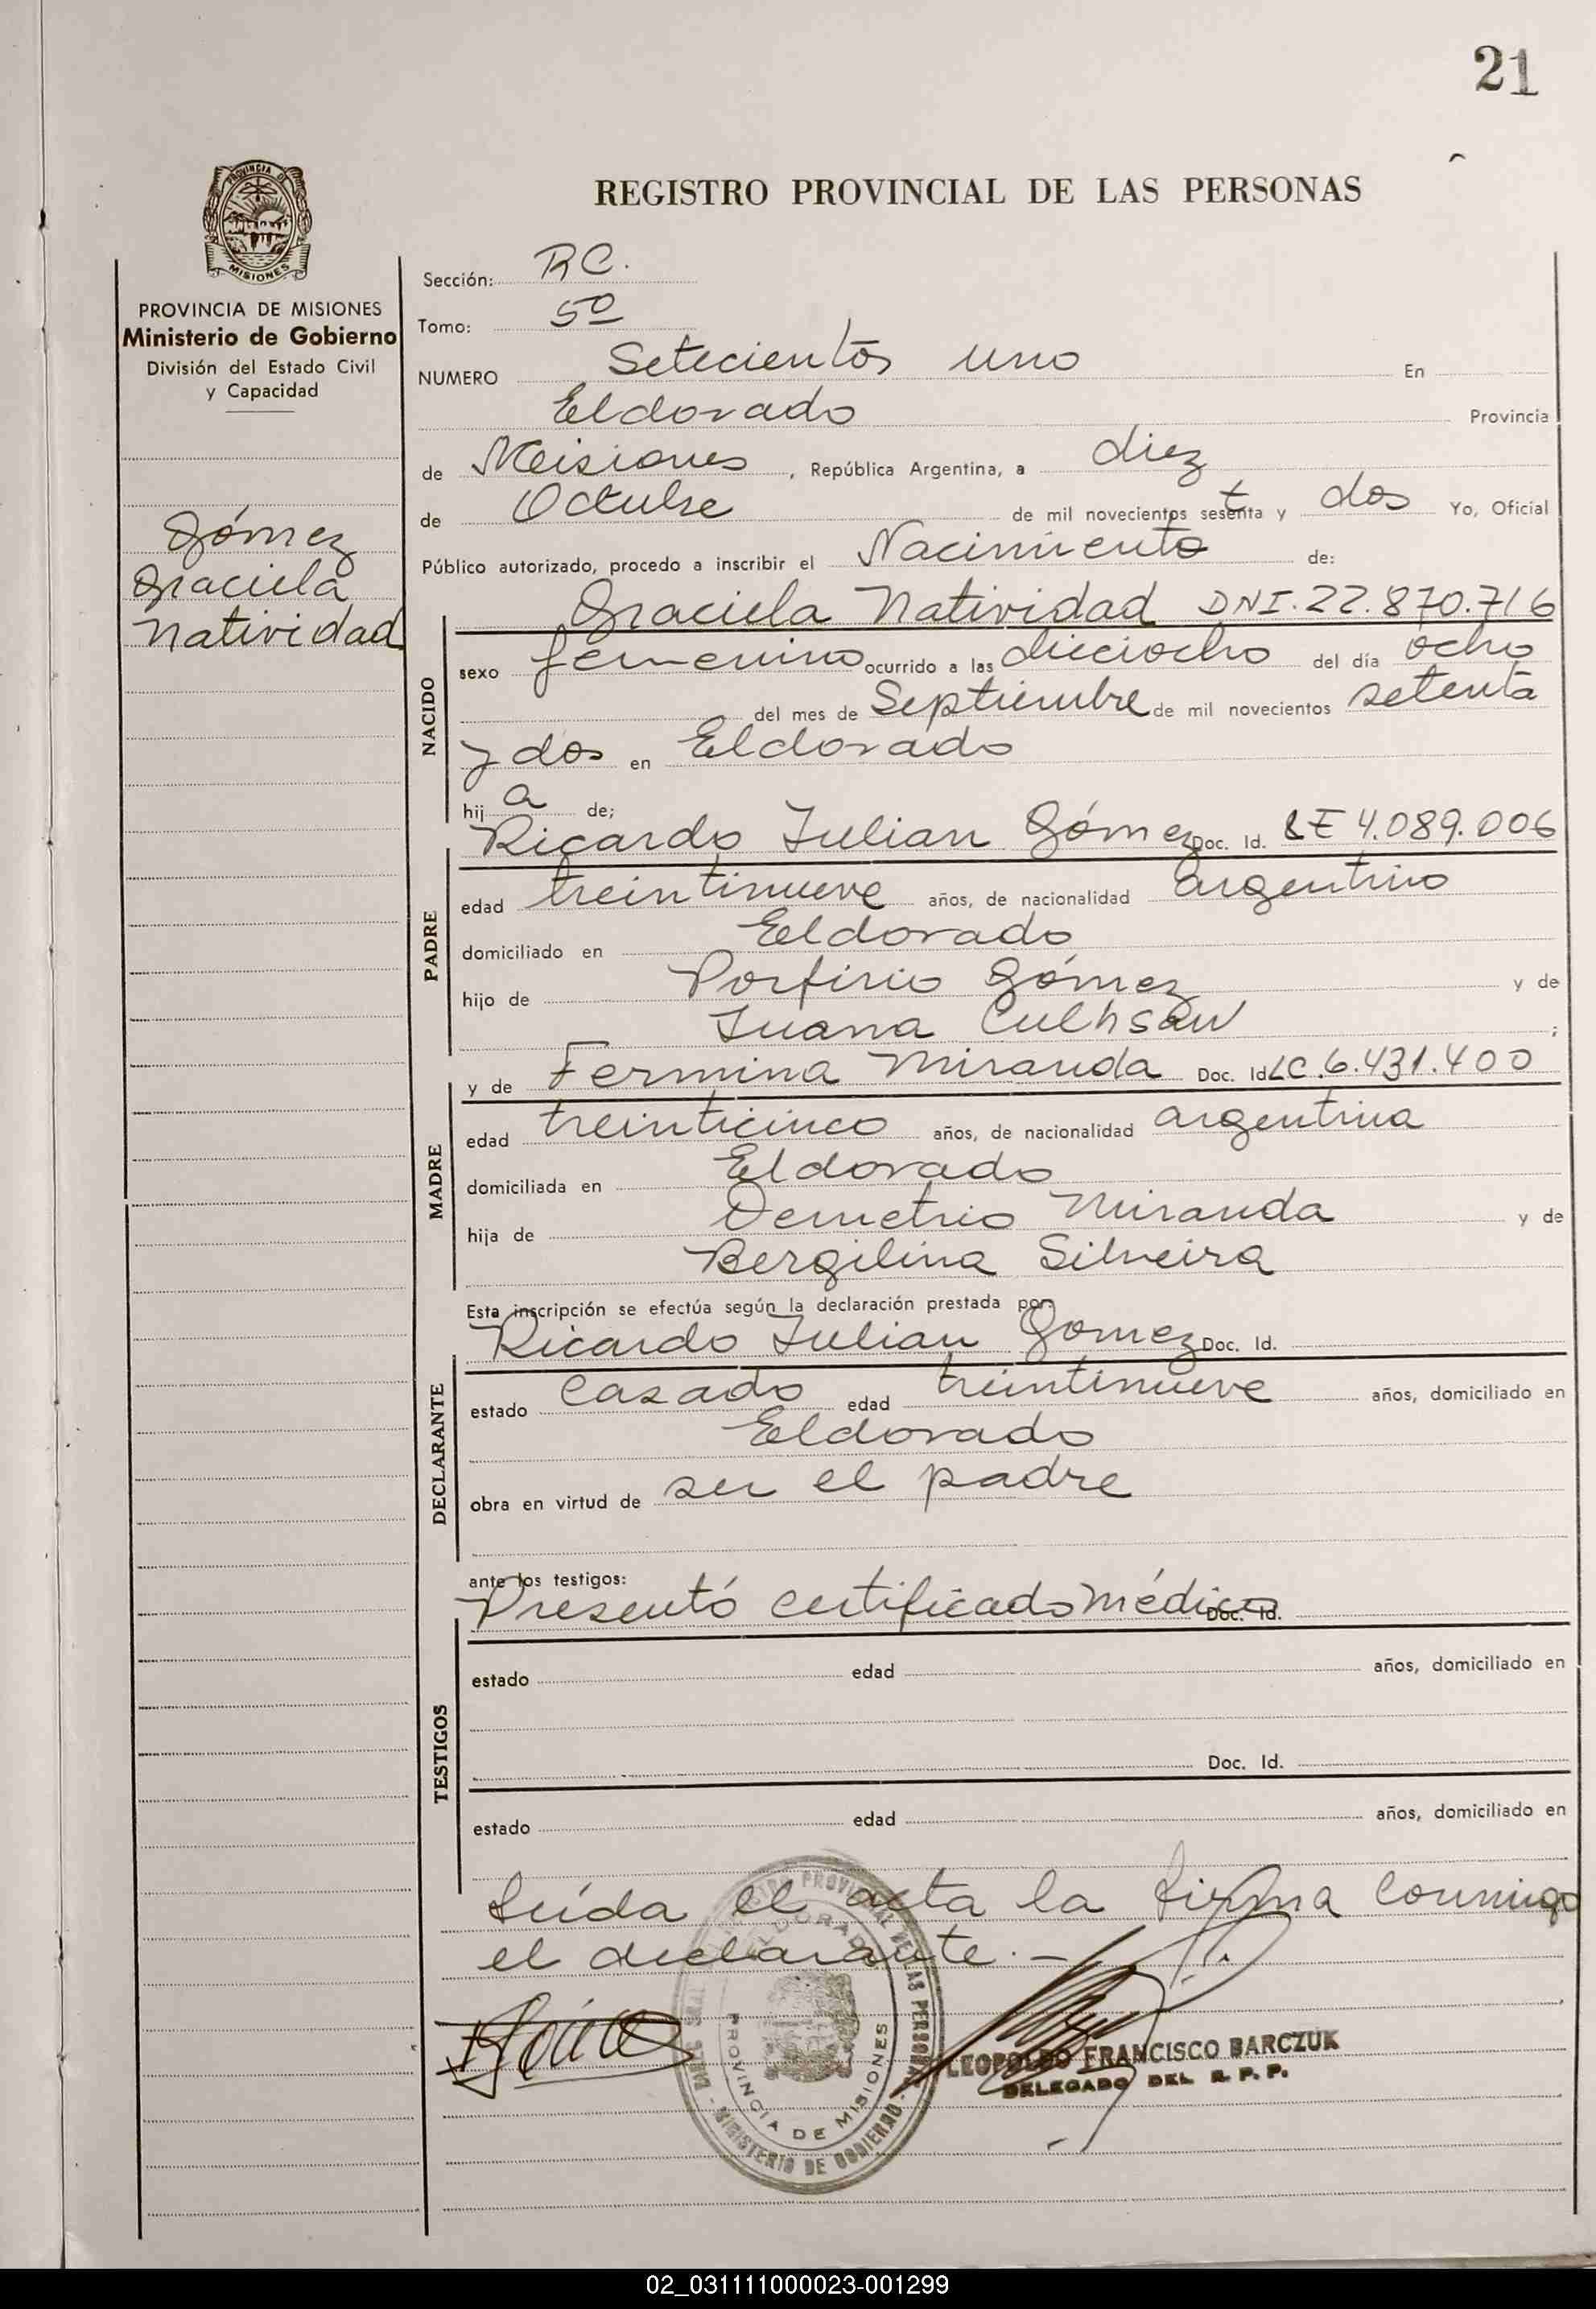 21
REGISTRO PROVINCIAL DE LAS PERSONAS
PROVINCIA DE
MISIONES
PROVINCIA DE MISIONES
Ministerio de Gobierno
División del Estado Civil
y Capacidad
Gómez
Graciela
Natividad
Sección: RC.
Tomo: 5º
NUMERO Setecientos uno En
Eldorado Provincia
de Misiones, República Argentina, a diez
de Octubre de mil novecientos setenta y dos Yo, Oficial
Público autorizado, procedo a inscribir el Nacimiento de:
NACIDO
Graciela Natividad DNI. 22.870.716
sexo femenino ocurrido a las dieciocho del día ocho
del mes de Septiembre de mil novecientos setenta
y dos en Eldorado
hij a de;
PADRE
Ricardo Julian Gómez Doc. Id. LE 4.089.006
edad treintinueve años, de nacionalidad argentino
domiciliado en Eldorado
hijo de Porfirio Gómez y de
Juana ;
MADRE
y de Fermina Miranda Doc. Id LC. 6.431.400
edad treinticinco años, de nacionalidad argentina
domiciliada en Eldorado
hija de Demetrio Miranda y de
Bergilina Silveira
Esta inscripción se efectúa según la declaración prestada por:
DECLARANTE
Ricardo Julian Gomez Doc. Id.
estado casado edad treintinueve años, domiciliado en
Eldorado
obra en virtud de ser el padre
ante los testigos:
TESTIGOS
Presentó certificado médico Doc. Id.
estado edad años, domiciliado en
Doc. Id.
estado edad años, domiciliado en
Leída el acta la firma conmigo
el declarante.-
ELDORADO
PROVINCIA DE MISIONES
MINISTERIO DE GOBIERNO
LEOPOLDO FRANCISCO BARCZUK
DELEGADO DEL R. P. P.
02_031111000023-001299